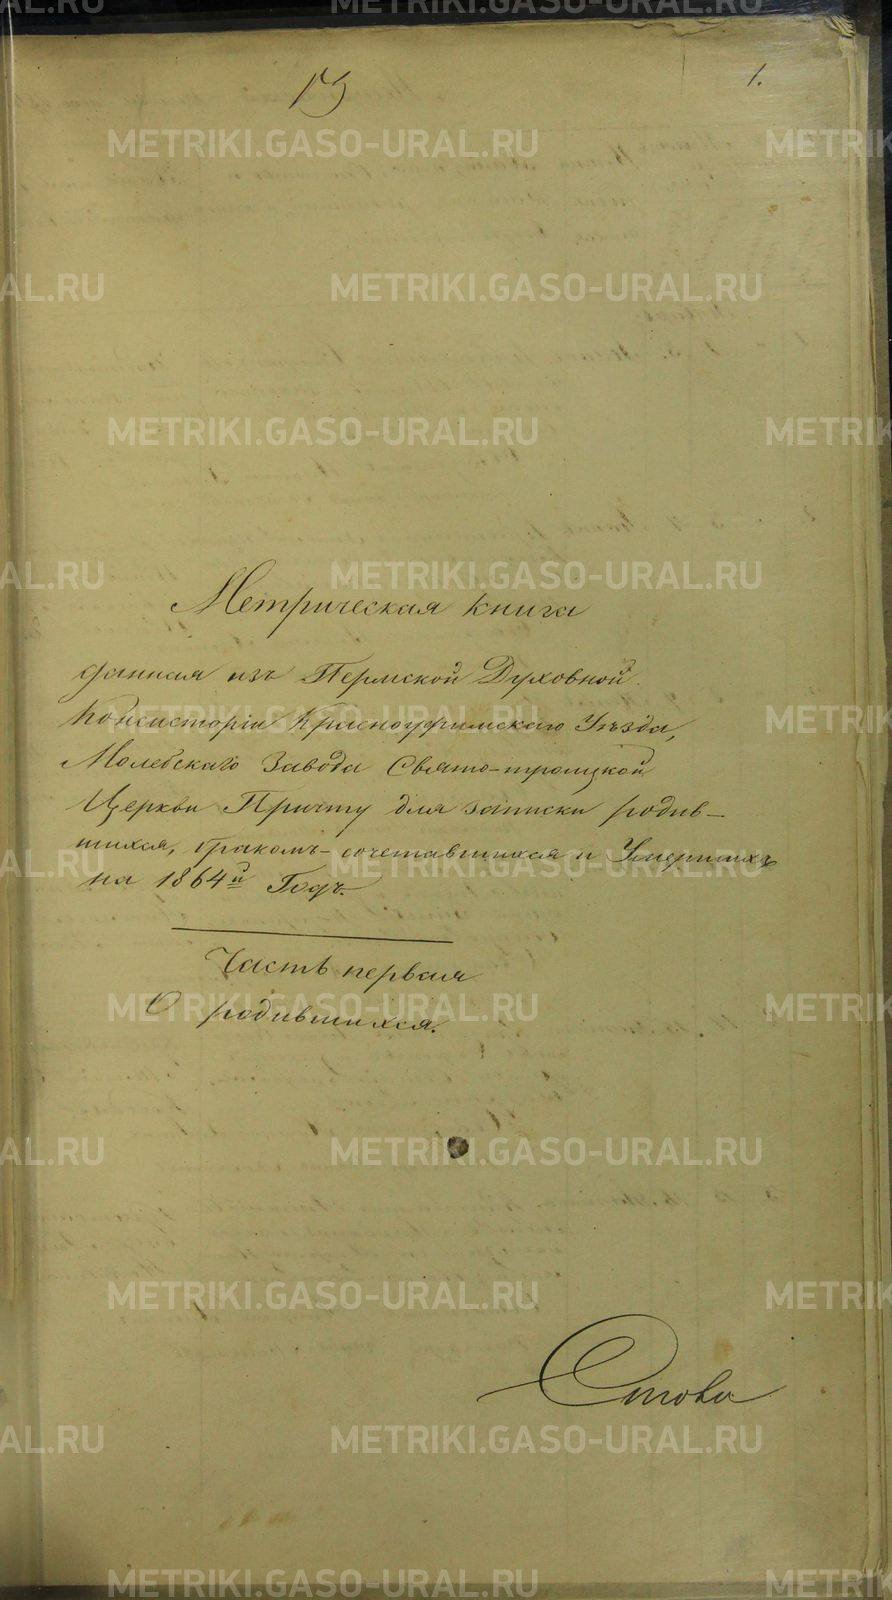 1.
Метрическая книга
данная изъ Пермской Духовной
Консисторіи Красноуфимскаго Уѣзда,
Молебскаго Завода Свято-троицкой
Церкви Причту для записки родив-
шихся, бракомъ-сочетавшихся и Умершихъ
на 1864й Годъ.
Часть первая
О родившихся.
METRIKI.GASO-URAL.RU